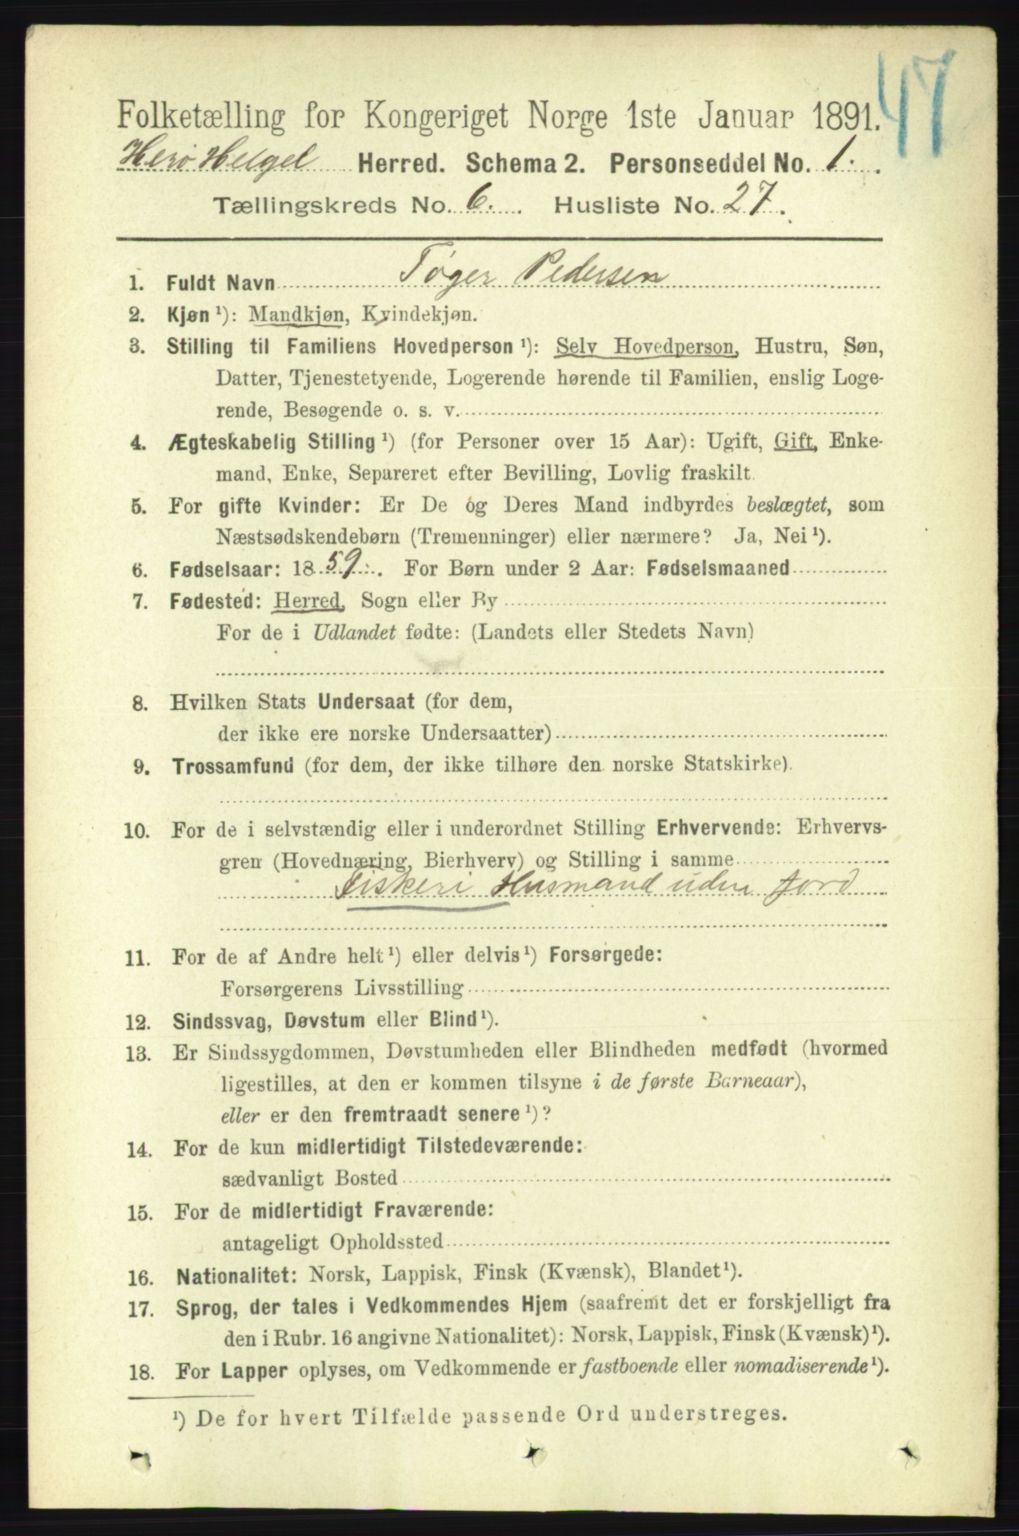 47
Folketælling for Kongeriget Norge 1ste Januar 1891.
Herø Helgel Herred. Schema 2. Personseddel No. 1.
Tællingskreds No. 6. Husliste No. 27.
1. Fuldt Navn Tøger Pedersen
2. Kjøn ¹): Mandkjøn, Kvindekjøn.
3. Stilling til Familiens Hovedperson ¹): Selv Hovedperson, Hustru, Søn,
Datter, Tjenestetyende, Logerende hørende til Familien, enslig Loge-
rende, Besøgende o. s. v.
4. Ægteskabelig Stilling ¹) (for Personer over 15 Aar): Ugift, Gift, Enke-
mand, Enke, Separeret efter Bevilling, Lovlig fraskilt.
5. For gifte Kvinder: Er De og Deres Mand indbyrdes beslægtet, som
Næstsødskendebørn (Tremenninger) eller nærmere? Ja, Nei ¹).
6. Fødselsaar: 1859. For Børn under 2 Aar: Fødselsmaaned
7. Fødested: Herred, Sogn eller By
For de i Udlandet fødte: (Landets eller Stedets Navn)
8. Hvilken Stats Undersaat (for dem,
der ikke ere norske Undersaatter)
9. Trossamfund (for dem, der ikke tilhøre den norske Statskirke).
10. For de i selvstændig eller i underordnet Stilling Erhvervende: Erhvervs-
gren (Hovednæring, Bierhverv) og Stilling i samme
Fiskeri Husmand uden Jord
11. For de af Andre helt ¹) eller delvis ¹) Forsørgede:
Forsørgerens Livsstilling
12. Sindssvag, Døvstum eller Blind ¹).
13. Er Sindssygdommen, Døvstumheden eller Blindheden medfødt (hvormed
ligestilles, at den er kommen tilsyne i de første Barneaar),
eller er den fremtraadt senere ¹)?
14. For de kun midlertidigt Tilstedeværende:
sædvanligt Bosted
15. For de midlertidigt Fraværende:
antageligt Opholdssted
16. Nationalitet: Norsk, Lappisk, Finsk (Kvænsk), Blandet ¹).
17. Sprog, der tales i Vedkommendes Hjem (saafremt det er forskjelligt fra
den i Rubr. 16 angivne Nationalitet): Norsk, Lappisk, Finsk (Kvænsk) ¹).
18. For Lapper oplyses, om Vedkommende er fastboende eller nomadiserende ¹).
¹) De for hvert Tilfælde passende Ord understreges.